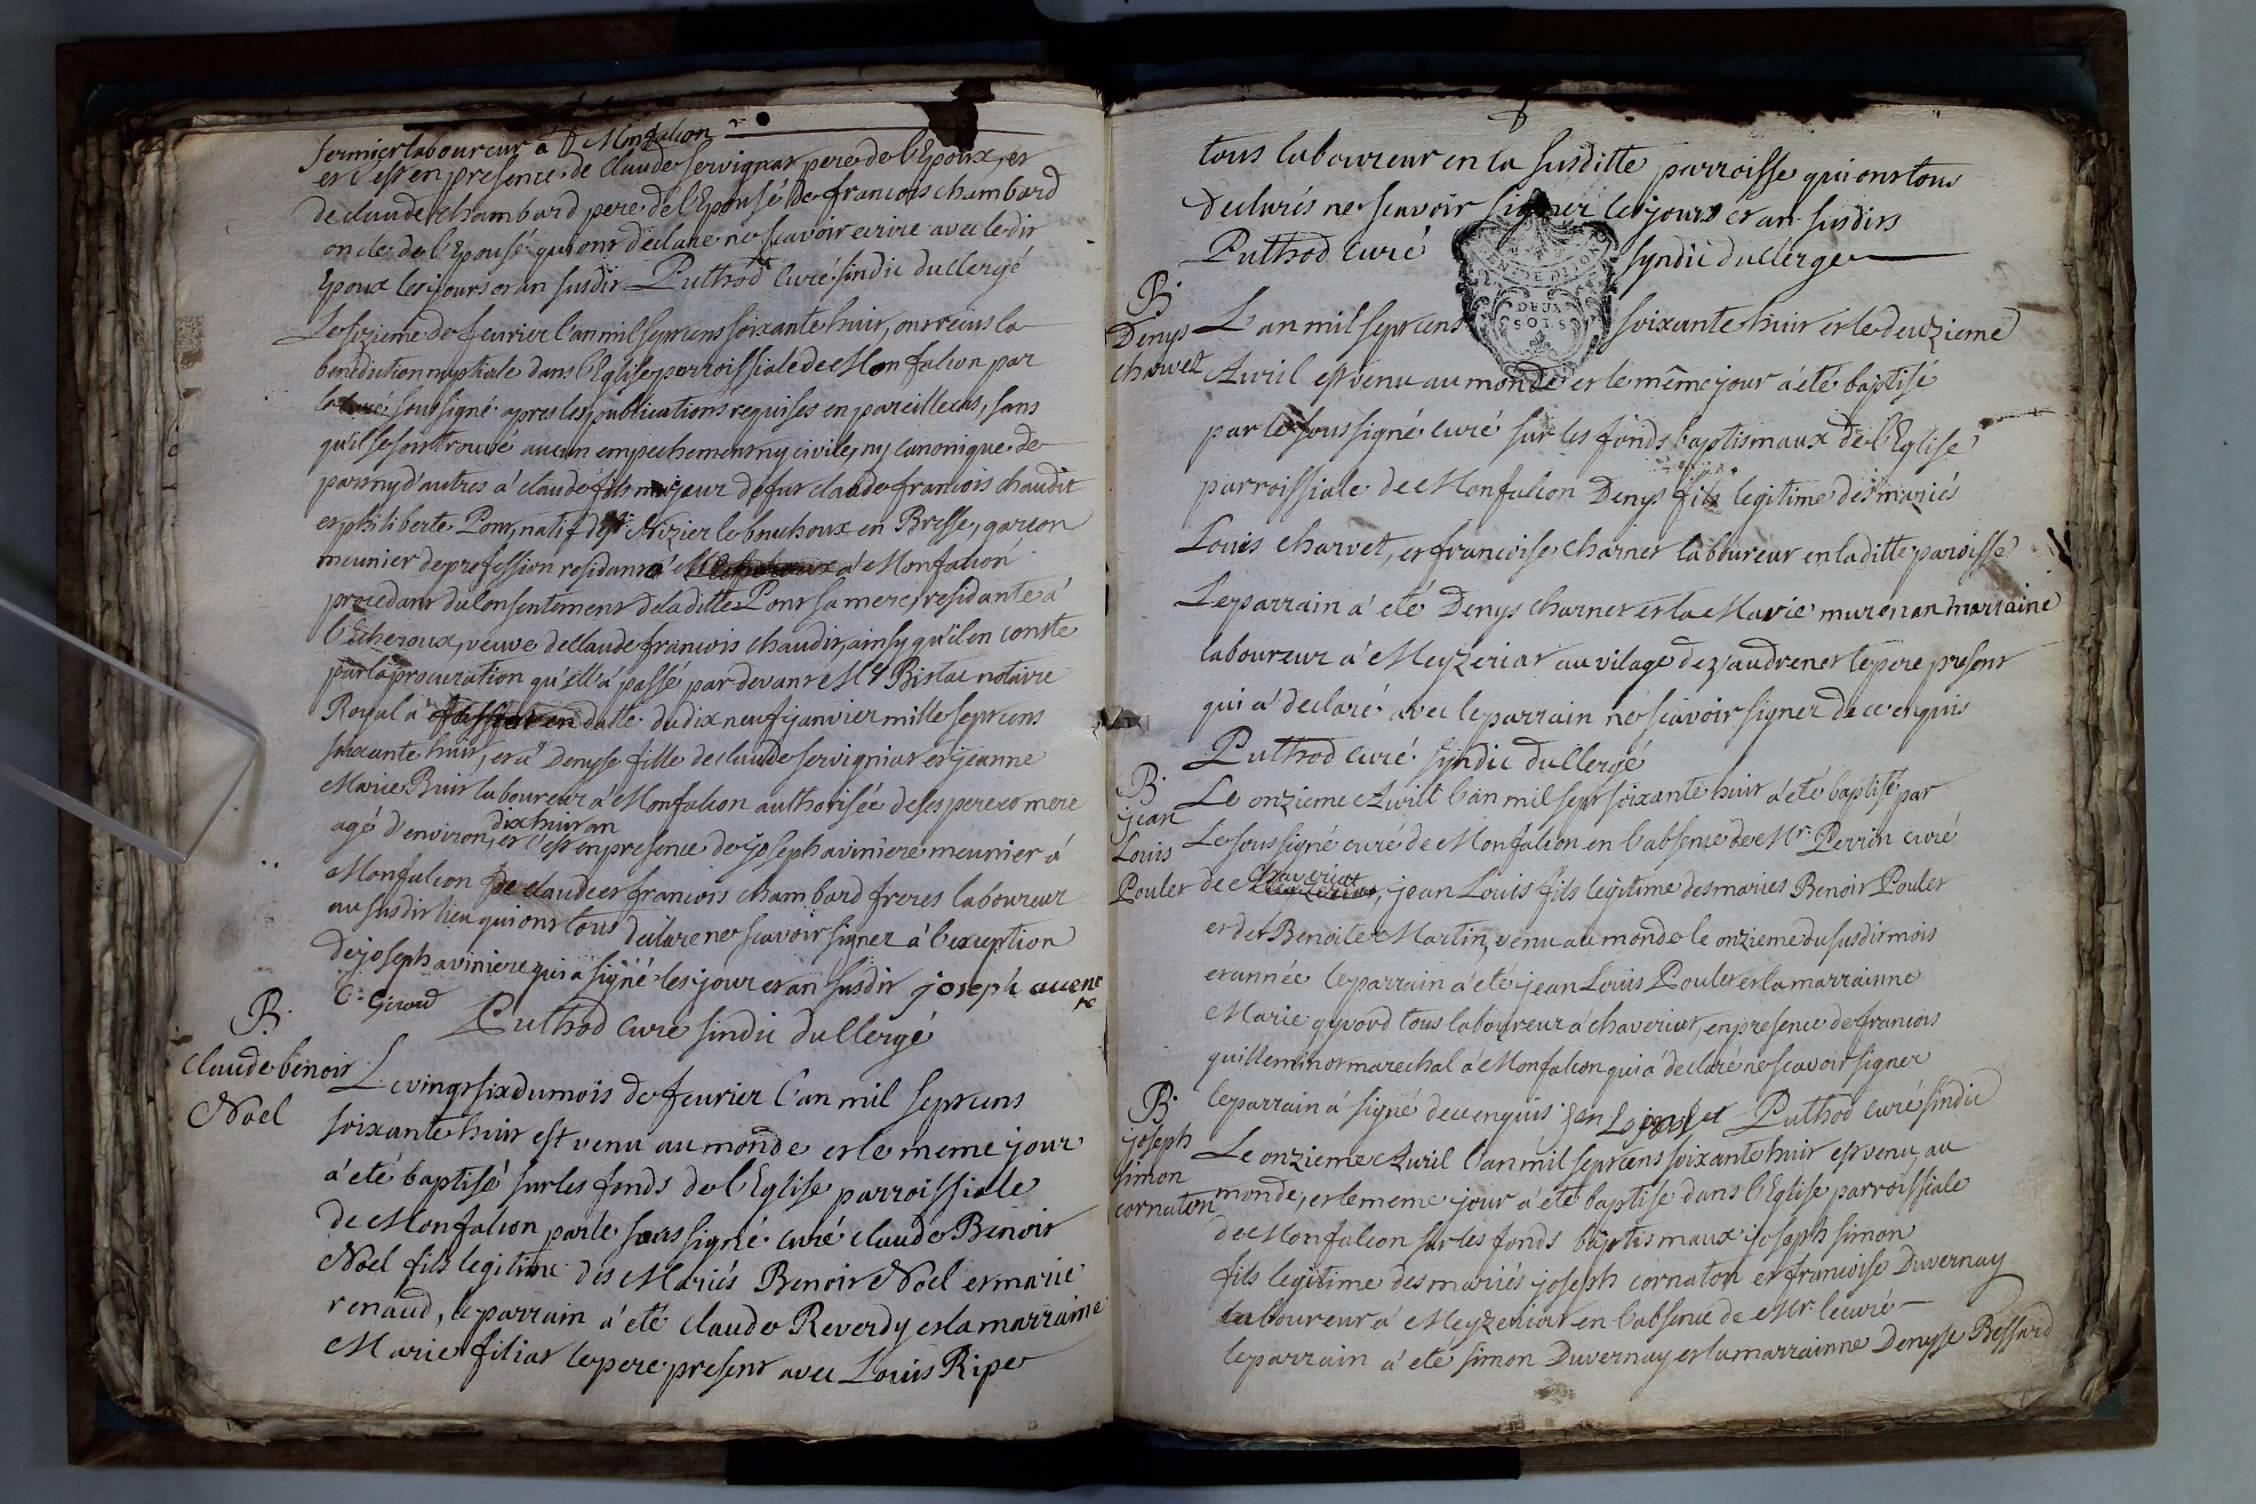 fermier laboureur à D Monfalcon
et c'est en presence de Claude Servignat pere de l'Epoux, et
de claude chambard pere de l'Epousé de francois chambard
oncle de l'Epousé qui ont declaré ne scavoir ecrire avec ledit
Epoux les jours et an susdit Puthod Curé sindic du clergé
Le sizieme de fevrier l'an mil sept cens soixante huit, ont recus la
benediction nuptiale dans l'Eglise parroissiale de Monfalcon par
le curé soussigné apres les publications requises en pareille cas, sans
qu'il se soit trouvé aucun empechement ny civile, ny canonique de
part ny d'autres à claude fils majeur de fut claude francois chaudit
et philiberte Pont, natif de St Nizier le bouchoux en Bresse, garcon
meunier de profession residant à Monfalcon
procedant du consentement de la ditte Pont sa mere, residante à
l'Echeroux, veuve de Claude francois chaudit, ainsy qu'il en conste
par la procuration qu'ell'a passé par devant Me Bistac notaire
Royal à en datte du dix neuf janvier mille sept cens
soixante huit, et à Denyse fille de claude servigniat et jeanne
Marie Buit laboureur à Monfalcon authorisée de ses pere et mere
agé d'environ dix huit an
et c'est en presence de joseph aviniere meunier à
Monfalcon de claude et francois chambard freres laboureur
au susdit lieu qui ont tous declaré ne scavoir signer à l'exception
de joseph aviniere qui a signé les jour et an susdit joseph avene
re
C: Girard Puthod Curé sindic du Clergé
B.
claude benoit
Noel
Le vingt six du mois de fevrier l'an mil sept cens
soixante huit est venu au monde et le meme jour
à été baptisé sur les fonds de l'Eglise parroissiale
de Monfalcon par le soussigné curé claude Benoit
Noel fils legitime des Mariés Benoit Noel et marie
renaud, le parrain à été claude Reverdy et la marraine
Marie filiat le pere present avec Louis Ripe
tous laboureur en la susditte parroisse qui ont tous
declarés ne scavoir signer les jours et an susdits
Puthod curé syndic du clergé
DEUX
SOLS
B.
Denys
charvet
L'an mil sept cens soixante huit et le deuzieme
Avril est venu au monde et le même jour à été baptisé
par le soussigné curé sur les fonds baptismaux de l'Eglise
parroissiale de Monfalcon Denys fils legitime des mariés
Louis charvet, et francoise charnet laboureur en laditte paroisse
Le parrain à eté Denys charnet et la Marie muret an marraine
laboureur à Meyzeriat au vilage de vaudrenet le pere present
qui à declaré avec le parrain ne scavoir signer de ce enquis
Puthod curé syndic du Clergé
B.
jean
Louis
Poulet
Le onzieme Avril l'an mil sept soixante huit à été baptisé par
Le soussigné curé de Monfalcon en l'absence de Mr. Perrin curé
de Chaveriat, jean Louis fils legitime des maries Benoit Poulet
et de Benoite Martin, venu au monde le onzieme du susdit mois
et année le parrain à été jean Louis Poulet et la marrainne
Marie gyvord tous laboureur à chaveriat, en presence de francois
guilleminot marechal à Monfalcon qui à declaré ne scavoir signer
le parrain à signé de ce enquis Puthod curé sindic
B.
joseph
simon
cornaton
Le onzieme Avril l'an mil sept cens soixante huit est venu au
monde, et le meme jour à été baptisé dans l'Eglise parroissiale
de Monfalcon sur les fonds baptismaux joseph simon
fils legitime des mariés joseph cornaton et francoise Duvernay
laboureur à Meyzeriat en l'absence de Mr. le curé
le parrain à eté simon Duvernay et la marrainne Denyse Bessard